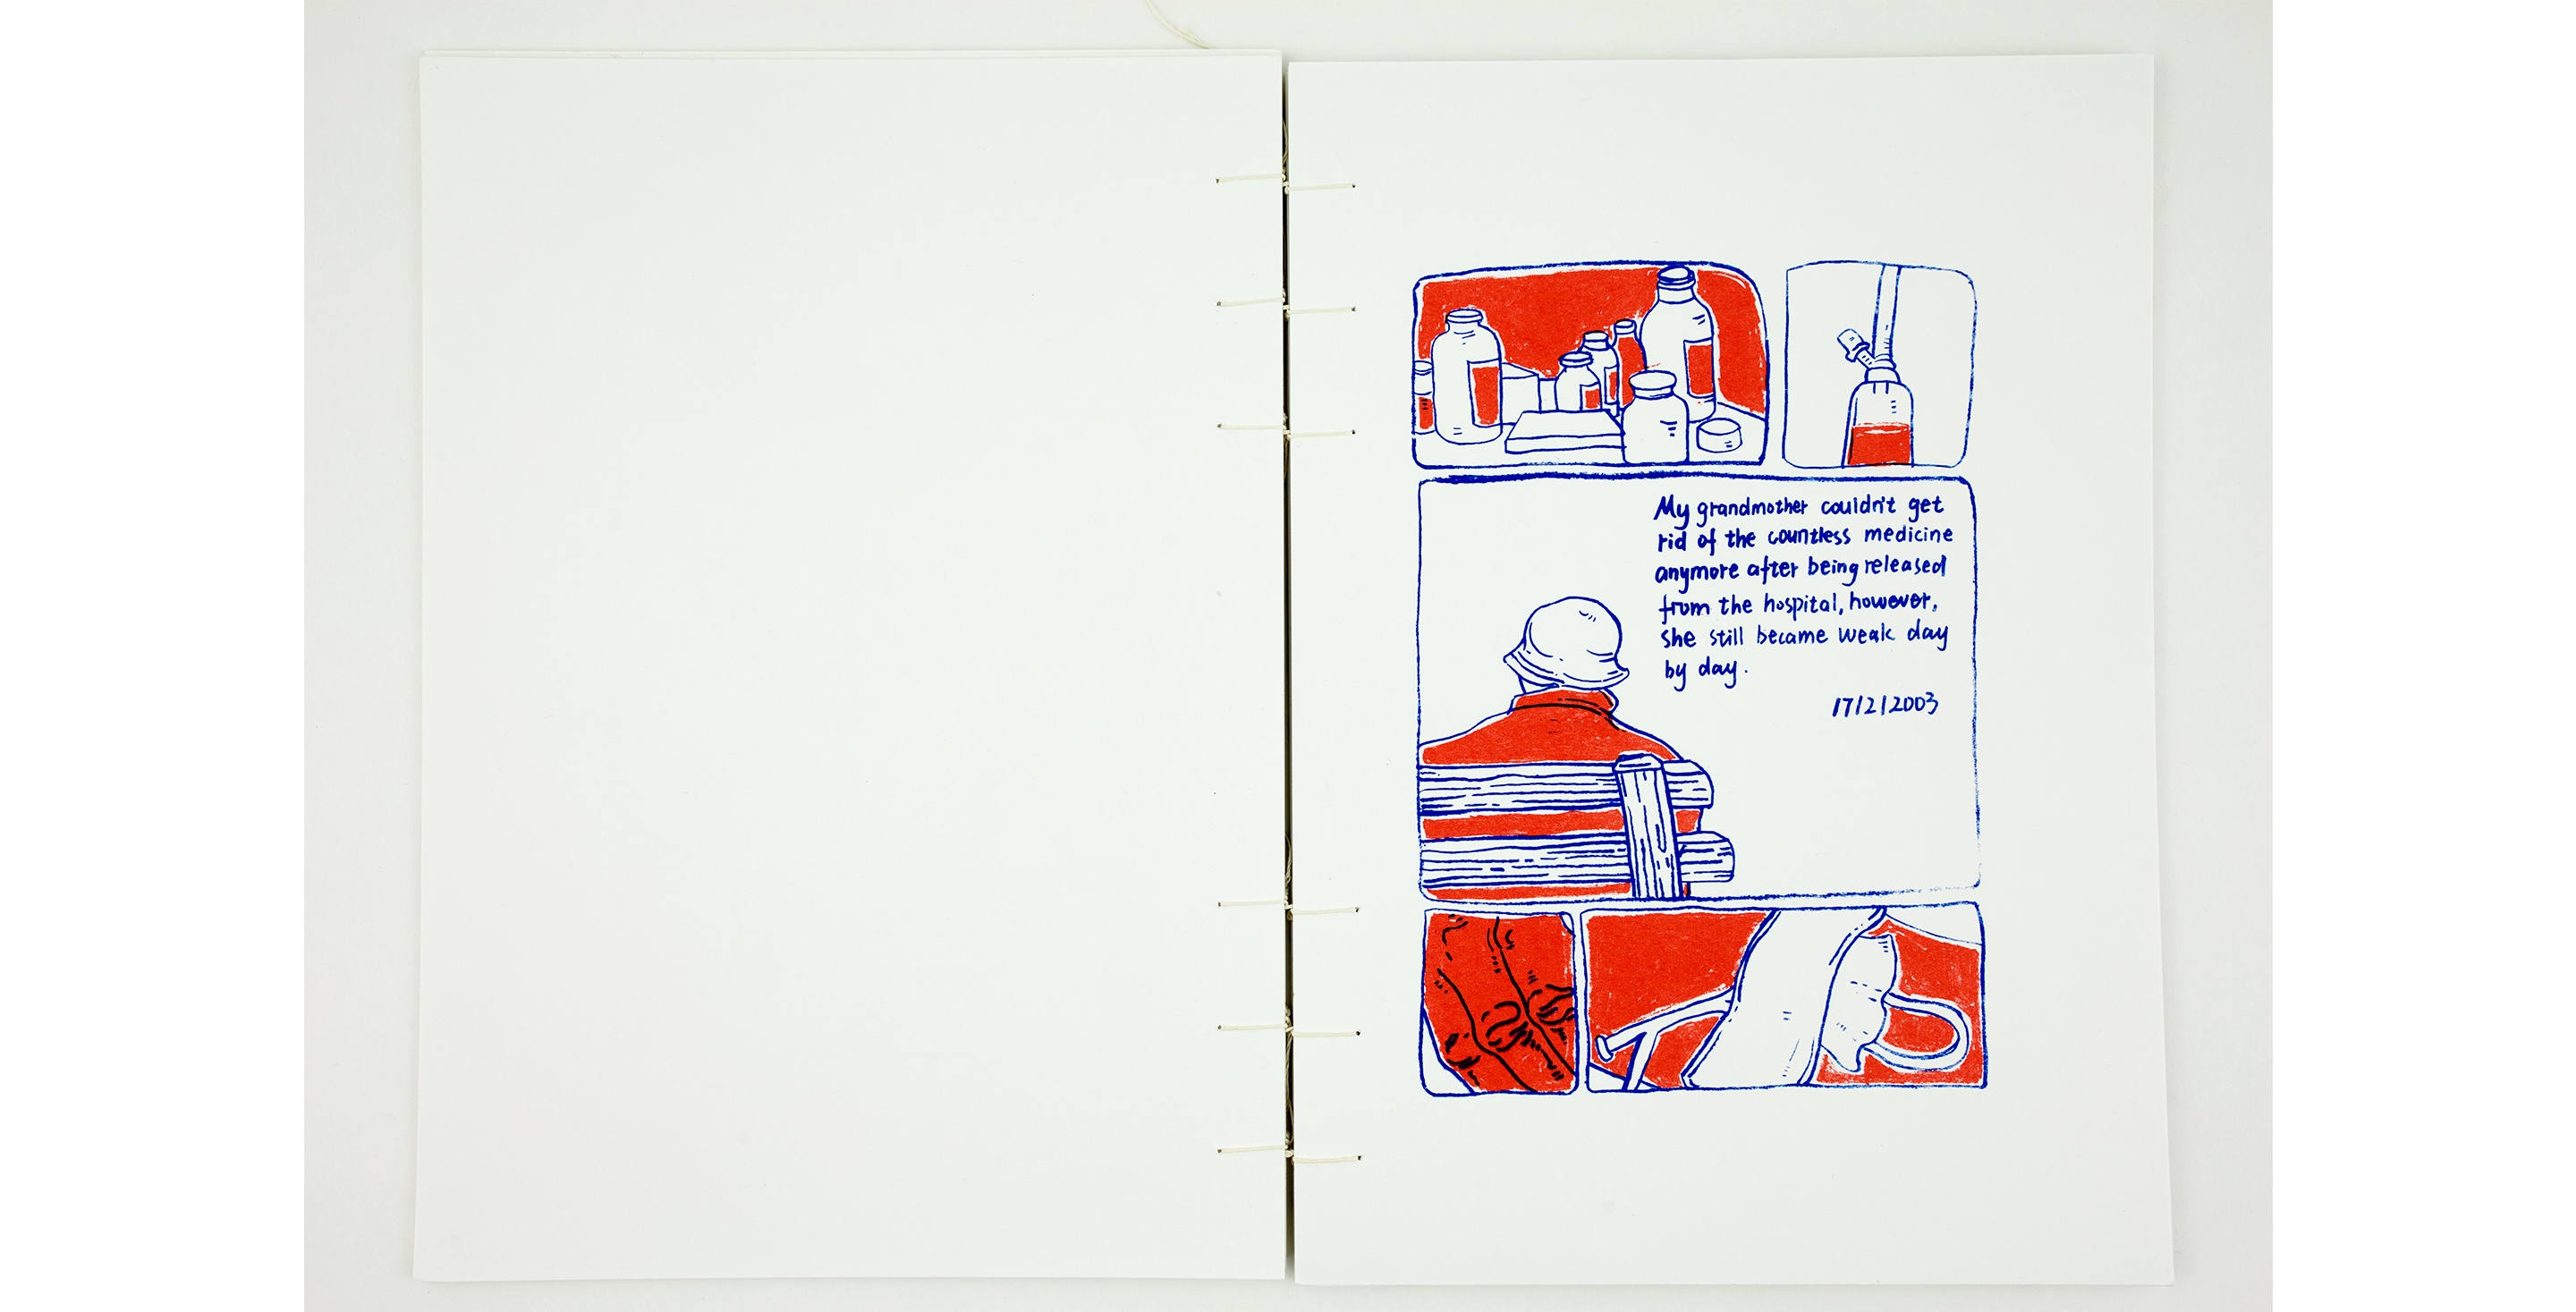 My grandmother couldn't get
rid of the countless medicine
anymore after being released
from the hospital, however,
she still became weak day
by day.
17/2/2003